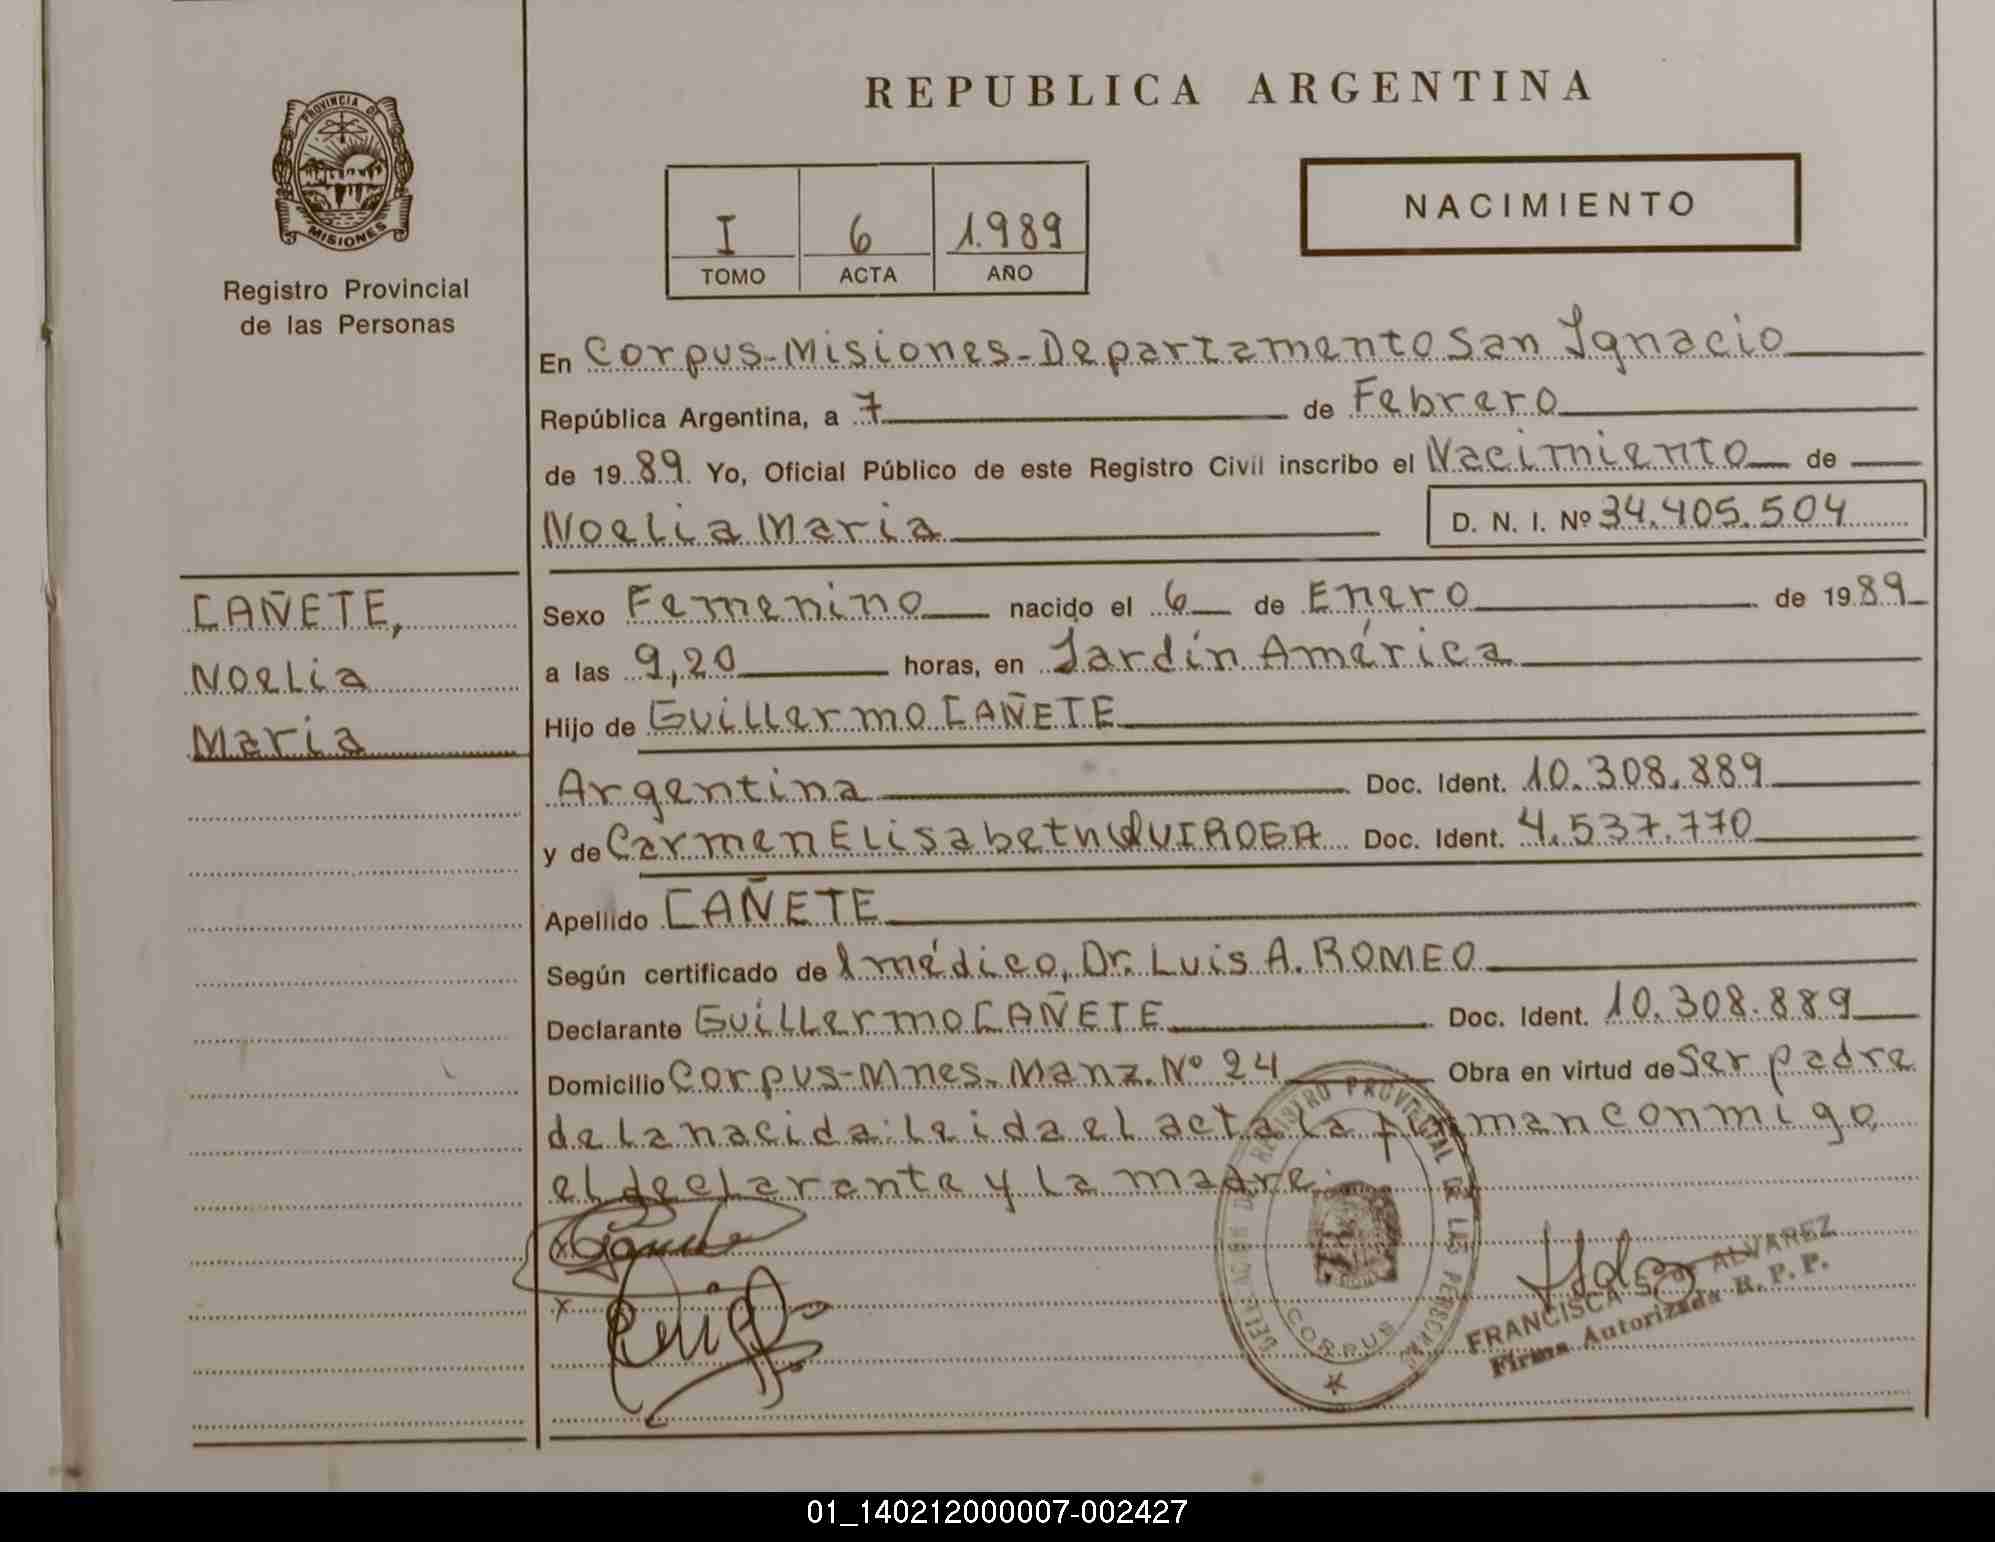 REPUBLICA ARGENTINA
PROVINCIA DE
MISIONES
Registro Provincial
de las Personas
NACIMIENTO
I 6 1.989
TOMO ACTA AÑO
En Corpus-Misiones-Departamento San Ignacio
República Argentina, a 7 de Febrero
de 1989. Yo, Oficial Público de este Registro Civil inscribo el Nacimiento de
Noelia Maria D. N. I. Nº 34.405.504
CAÑETE,
Noelia
Maria
Sexo Femenino nacido el 6 de Enero de 1989
a las 9,20 horas, en Jardín América
Hijo de Guillermo CAÑETE
Argentina Doc. Ident. 10.308.889
y de Carmen Elisabeth QUIROGA Doc. Ident. 4.537.770
Apellido CAÑETE
Según certificado de l médico, Dr. Luis A. ROMEO
Declarante Guillermo CAÑETE Doc. Ident. 10.308.889
Domicilio Corpus-Mnes. Manz. Nº 24 Obra en virtud de Ser padre
de la nacida: leida el acta la firman conmigo,
el declarante y la madre.
DELEGACION DEL REGISTRO PROVINCIAL DE LAS PERSONAS
CORPUS
FRANCISCA S. de ALVAREZ
Firma Autorizada R. P. P.
01_140212000007-002427